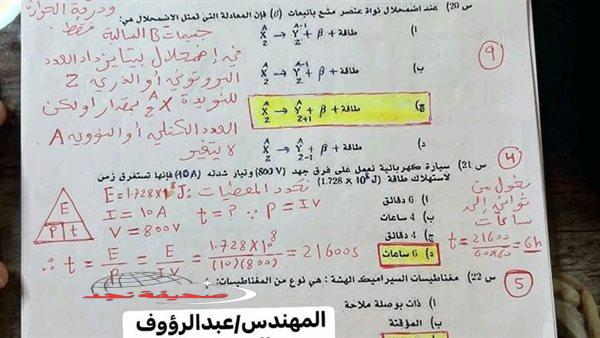 ودرجة الحرارة
فقط
س 20) عند اضمحلال نواة عنصر مشع بانبعاث (β) فإن المعادلة التي تمثل الاضمحلال هي:
أ) X → Y + β + طاقة
A Z A-1 Z
ب) X → Y + β + طاقة
A Z A-1 Z-1
ج) X → Y + β + طاقة
A Z A Z+1
د) X → Y + β + طاقة
A Z A Z-1
جسيمات B السالبة
في إضمحلال بيتا يزداد العدد
البروتوني أو الذري Z
للنويدة X بمقدار 1 ولكن
A Z
العدد الكتلي أو النووي A
لا يتغير
9
س 21) سيارة كهربائية تعمل على فرق جهد (800 V) وتيار شدته (10 A) فإنها تستغرق زمن
لاستهلاك طاقة (1.728 X 10⁸ J)
أ) 6 دقائق
ب) 4 ساعات
ج) 4 دقائق
د) 6 ساعات
نحدد المعطيات:
E = 1.728 X 10⁸ J
I = 10A t = ? ∵ P = IV
V = 800V
E
P t
∴ t = E/P = E/IV = 1.728 X 10⁸/(10)(800) = 21600s
4
نحول من
ثواني إلى
ساعات
t = 21600/60x60 = 6h
س 22) مغناطيسات السيراميك الهشة: هي نوع من المغناطيسات:
أ) ذات بوصلة ملاحة
ب) المؤقتة
5
صحيفة نجد
المهندس/عبدالرؤوف